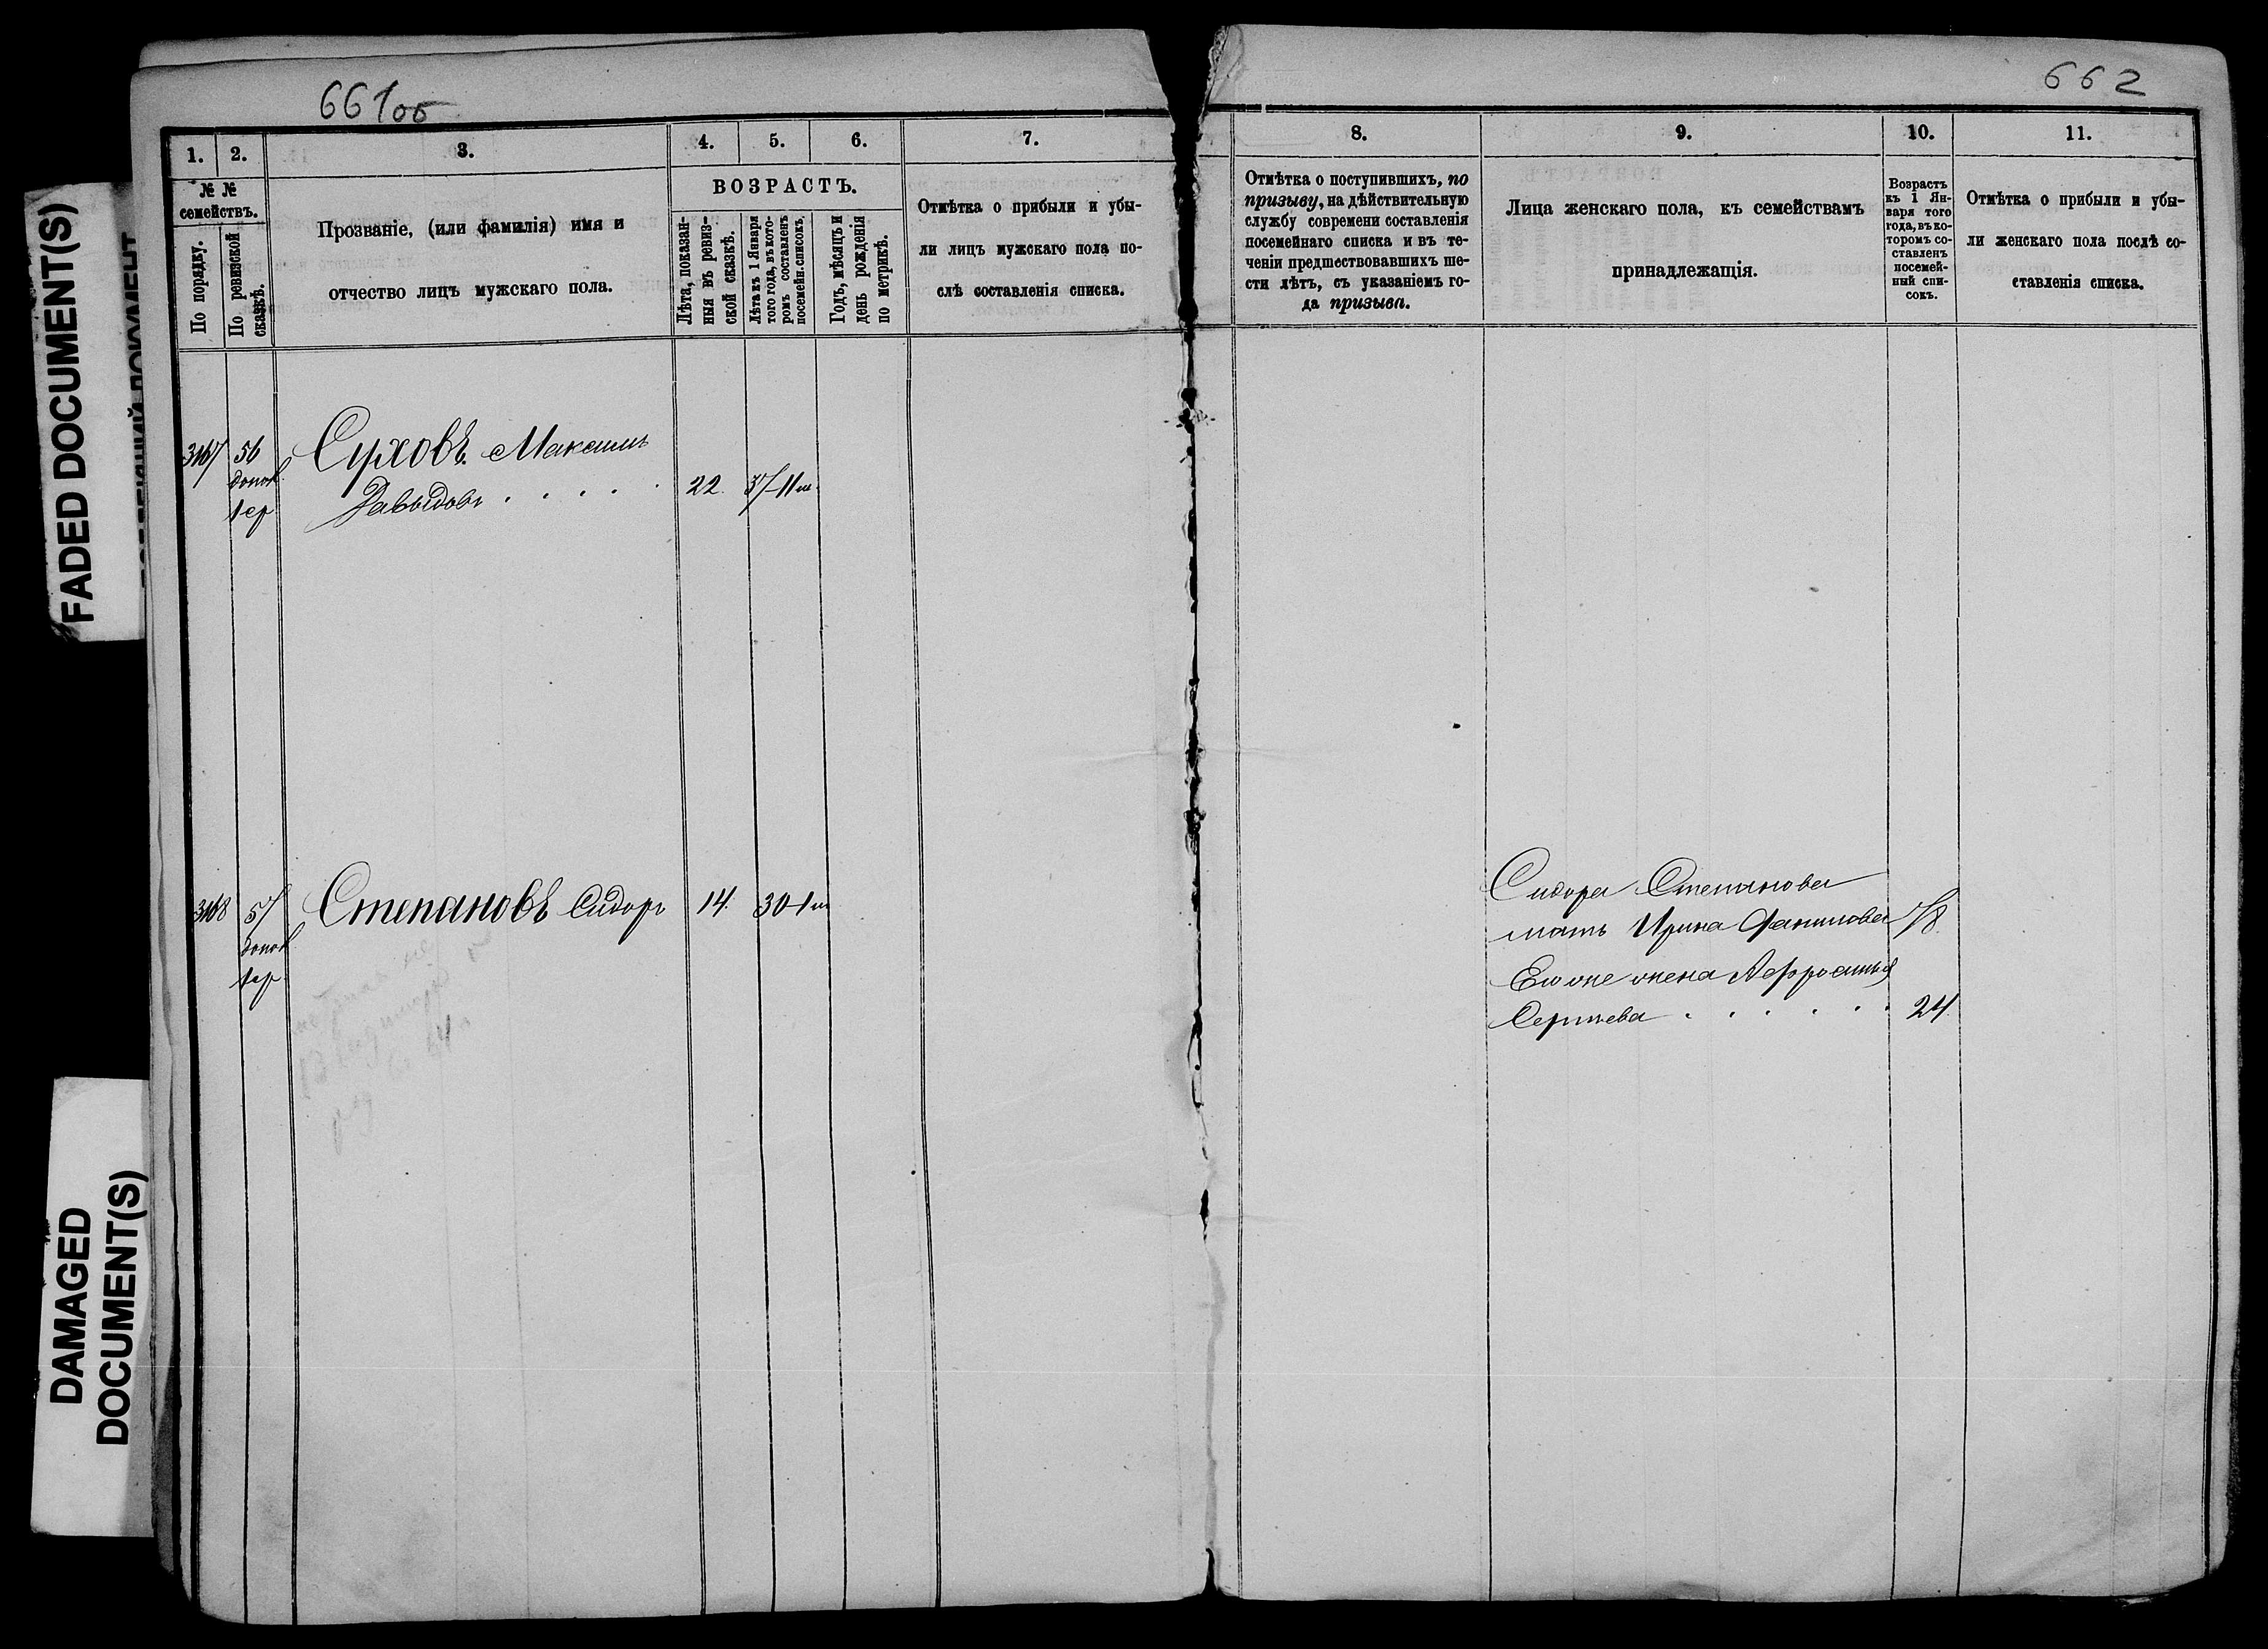 661об
662
FADED DOCUMENT(S)
DAMAGED
DOCUMENT(S)
1.
2.
3.
4.
5.
6.
7.
8.
9.
10.
11.
№ №
семействъ.
По порядку.
По ревизской
сказкѣ.
Прозваніе, (или фамилія) имя и
отчество лицъ мужскаго пола.
ВОЗРАСТЪ.
Лѣта, показан-
ныя въ ревиз-
ской сказкѣ.
Лѣта къ 1 Января
того года, въ кото-
ромъ составленъ
посемейн. списокъ.
Годъ, мѣсяцъ и
день рожденія
по метрикѣ.
Отмѣтка о прибыли и убы-
ли лицъ мужскаго пола по-
слѣ составленія списка.
Отмѣтка о поступившихъ, по
призыву, на дѣйствительную
службу современи составленія
посемейнаго списка и въ те-
ченіи предшествовавшихъ ше-
сти лѣтъ, съ указаніемъ го-
да призыва.
Лица женскаго пола, къ семействамъ
принадлежащія.
Возрастъ
къ 1 Ян-
варя того
года, въ ко-
торомъ со-
ставленъ
посемей-
ный спи-
сокъ.
Отмѣтка о прибыли и убы-
ли женскаго пола послѣ со-
ставленія списка.
3167 56 Суховъ. Максимъ
допол.
Давыдовъ . . . . . 22. 37-11м.
1 ср
3168 57 Степановъ Сидоръ 14. 30-1м
допол
1 ср
Сидора Степанова
мать Ирина
Его же жена Афросинья
Сергѣева . . . . . . 24.